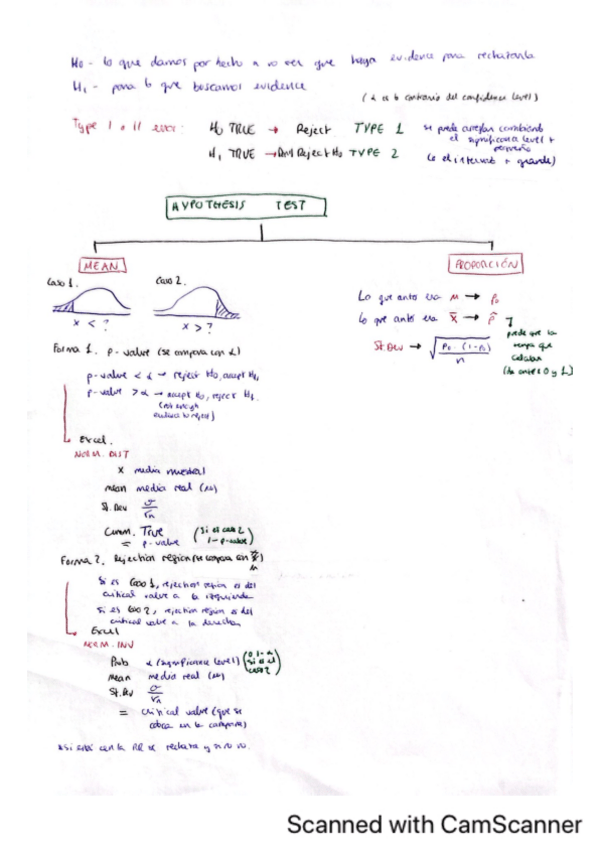 Ho - lo que damos por hecho a no ver que haya evidence para rechazarla
H1 - para lo que buscamos evidence
(α es lo contrario del confidence level)
Type I o II error: Ho TRUE → Reject TYPE 1
se puede arreglar cambiando el significance level + pequeño
H1 TRUE → Don't Reject Ho TYPE 2
(o el interval + grande)
HYPOTHESIS TEST
MEAN
PROPORCIÓN
Caso 1.
Caso 2.
x < ?
x > ?
Lo que antes era M → Po
Lo que antes era X̄ → p̂
puede que la tenga que calcular
(la entre 0 y 1)
St.Dev → √(Po·(1-Po)/n)
Forma 1. p-value (se compara con α)
p-value < α → reject Ho, accept H1
p-value > α → accept Ho, reject H1
(not enough evidence to reject)
Excel.
NORM.DIST
x media muestral
mean media real (μ)
St.Dev σ/√n
Cumm. True (si es caso 2 1-p-value)
= p-value
Forma 2. Rejection region (se compara con x̄)
Si es Caso 1, rejection region es del
critical value a la izquierda
Si es Caso 2, rejection region es del
critical value a la derecha
Excel
NORM.INV
Prob α (significance level) (o 1-α si es el caso 2)
mean media real (μ)
St.Dev σ/√n
= critical value (que se
coloca en la campana)
*si está en la RR se rechaza y si no no.
Scanned with CamScanner